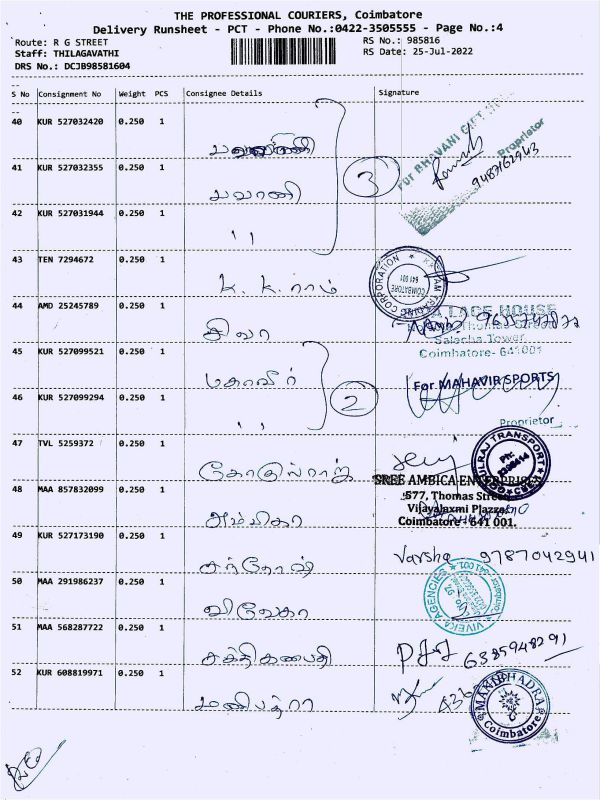 THE PROFESSIONAL COURIERS, Coimbatore
Delivery Runsheet - PCT - Phone No.:0422-3505555 - Page No.:4
Route: R G STREET RS No.: 985816
Staff: THILAGAVATHI RS Date: 25-Jul-2022
DRS No.: DCJB98581604
S No Consignment No Weight PCS Consignee Details Signature
40 KUR 527032420 0.250 1
For BHAVANI GIFT
Proprietor
9487162943
41 KUR 527032355 0.250 1 பவானி
3
42 KUR 527031944 0.250 1 ''
43 TEN 7294672 0.250 1 k.k.ராம்
CORPORATION
COIMBATORE
641 001
44 AMD 25245789 0.250 1 சிவா
LACE HOUSE
Thomas Street
Salacha Tower,
Coimbatore- 641001
45 KUR 527099521 0.250 1 மகாவீர்
For MAHAVIR SPORTS
2
46 KUR 527099294 0.250 1 ''
Proprietor
47 TVL 5259372 0.250 1 கோகுல்ராஜ்
TRANSPORT
48 MAA 857832099 0.250 1 அம்பிகா
SREE AMBICA ENTERPRISES
577, Thomas Street
Vijayalaxmi Plazze,
Coimbatore - 641 001.
49 KUR 527173190 0.250 1 சந்தோஷ் Varsha 9787042941
50 MAA 291986237 0.250 1 விவேகா
VIVEKA AGENCIES
51 MAA 568287722 0.250 1 சக்திகணபதி 6385948291
52 KUR 608819971 0.250 1 மணிபத்ரா
MANIBHADRA
Coimbatore